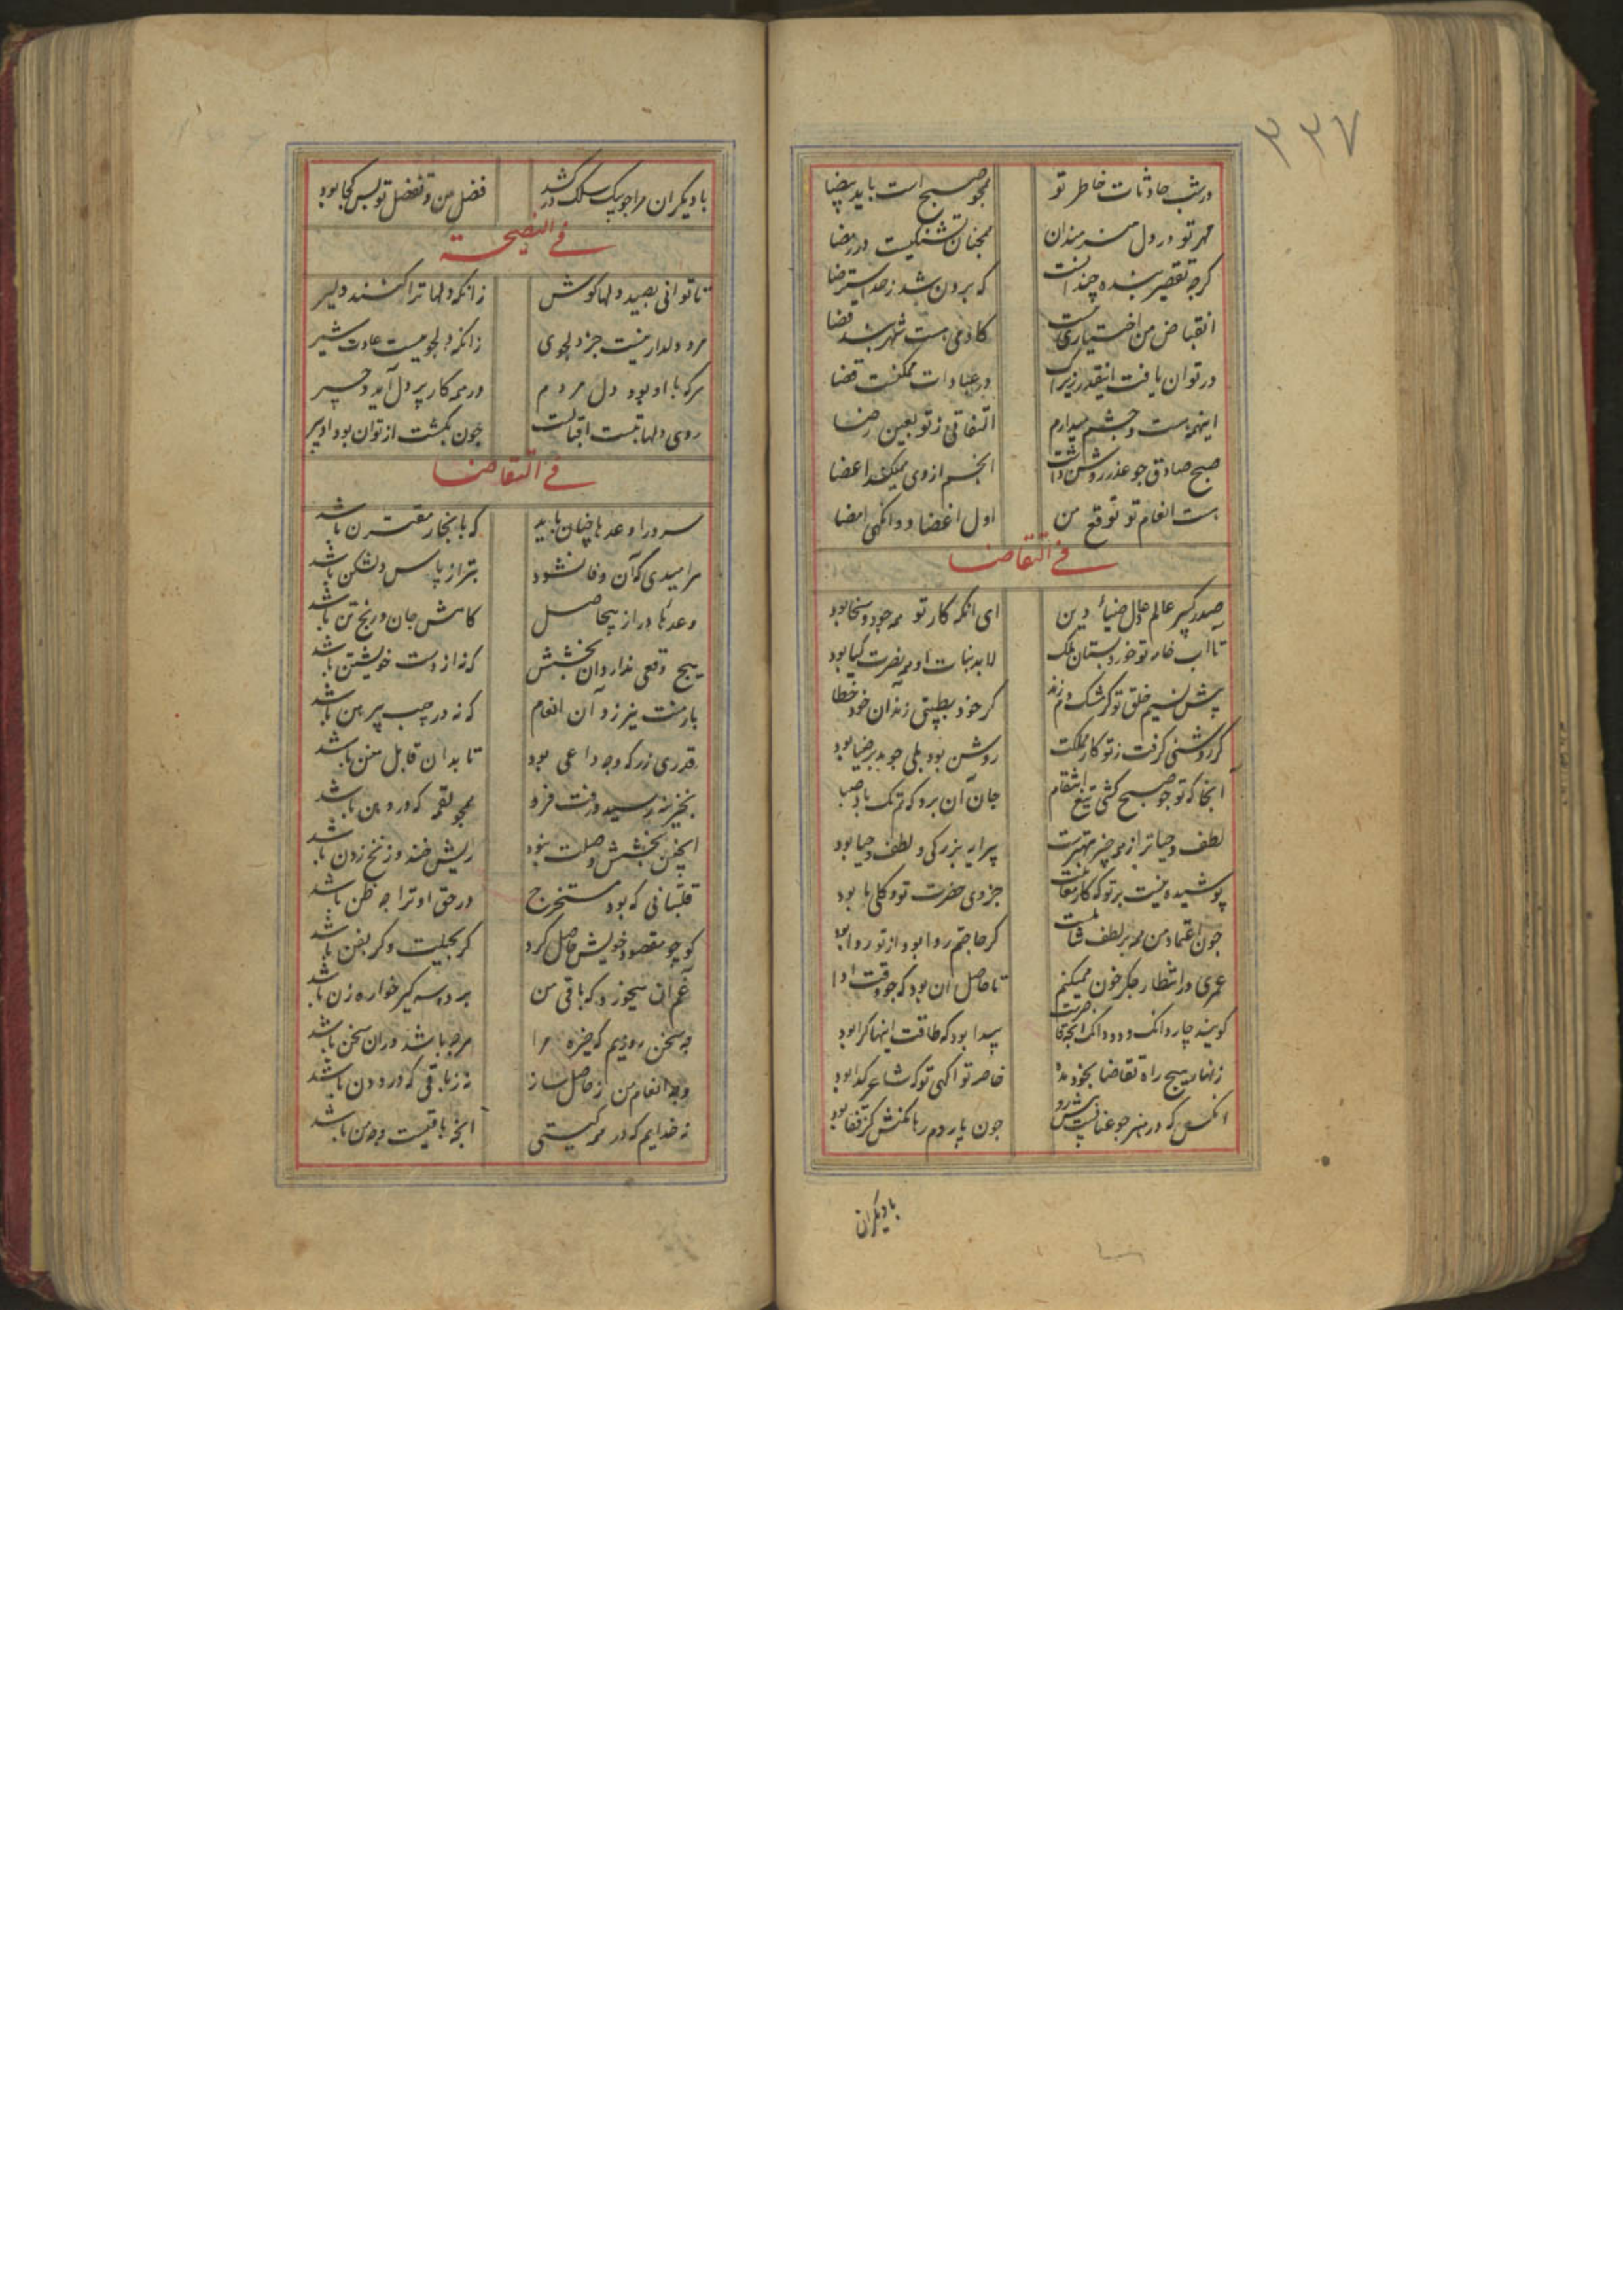 ۳۳۷
در شب حادثات خاطر تو همچو صبح است با ید بیضا
مهر تو در دل هنرمندان همچنان تشنگیست در رمضا
کرچه تقصیر بنده چندانست که برون شد ز حد استرضا
انقباض من اختیاری نیست کادمی هست شهربند قضا
در توان یافت اینقدر زیراک در عبادات ممکنست قضا
اینهمه هست و چشم میدارم التفاتی ز تو بعین رضا
صبح صادق جو عذر روشن داشت انجم از وی میکند اغضا
هست انعام تو توقع من اول اغضا و وانکهی امضا
فی التقاضا
صدر کبیر عالم عادل ضیاء دین ای انکه کار تو همه جود و سخا بود
تا آب خامه تو خورد بستان ملک لابد نبات او همه نضرت کیا بود
پیش نسیم خلق تو کر مشک دم زند کر خود بطیبتی زند آن خود خطا بود
کر روشنی کرفت ز تو کار مملکت روشن بود بلی جو مدبر ضیا بود
آنجا که تو جو صبح کشی تیغ انتقام جان آن برد که تر ک باد صبا
لطف و حیا ترا ز همه چیز بهترست پیرایه بزرکی و لطف و حیا بود
پوشیده نیست بر تو که کار جزوی حضرت تو و کلی ما بود
جون اعتماد من همه بر لطف شماست کر حاجتم روا بود از تو روا بود
عمری در انتظار جکر خون همیکنم تا حاصل آن بود که جو وقت ادا
کویند چار دانک و دو دانک پیدا بود که طاقت اینها کرا بود
زنهار هیچ راه تقاضا بخود مده خاصه تو آکهی تو که شاعر کدا بود
آنکس که در هنر جو عنانست پیش رو جون پاردم رها مکنش کز قفا بود
بادیکران
بادیکران مرا جو بیک سلک در کشد فضل من و تفضل تو پس کجا بود
فی النصیحة
تا توانی بصید دلها کوش زانکه دلها ترا کنند دلیر
مرد دلدار نیست جز دلجوی زانکه دلجوییست عادت شیر
هرکه با او بود دل مردم در همه کار پر دل آید و چیر
روی دلها بتست اقبالت جون بکشت از تو آن بود ادبیر
فی التقاضا
سرورا وعدها چنان باید که بانجاز مقترن باشد
هر امیدی که آن وفا نشود بتر از یاس دلشکن باشد
وعدهاء دراز بیحاصل کاهش جان و رنج تن باشد
هیچ وقعی ندارد آن بخشش که نه از دست خویشتن باشد
بار منت نیرزد آن انعام که نه در جیب پیرهن باشد
قدری زر که وجه داعی بود تا بدان قابل منن باشد
بخزینه رسید و رفت فرو همچو لقمه که در دهن باشد
اینچنین بخشش و صلت نبود ریش خند و زنخ زدن باشد
قلتبانی که بود مستخرج در حق او ترا چه ظن باشد
کو جو مقصود خویش حاصل کرد کر بحیلت و کر بفن باشد
غم آن میخورد که باقی من بر دهد
چه سخن رودیم که خیره مرا هرچه باشد در آن سخن باشد
وجه انعام من ز حاصل ساز نه ز باقی که درودن باشد
نه خدایم که در همه کیتی انچه باقیست وجه من باشد